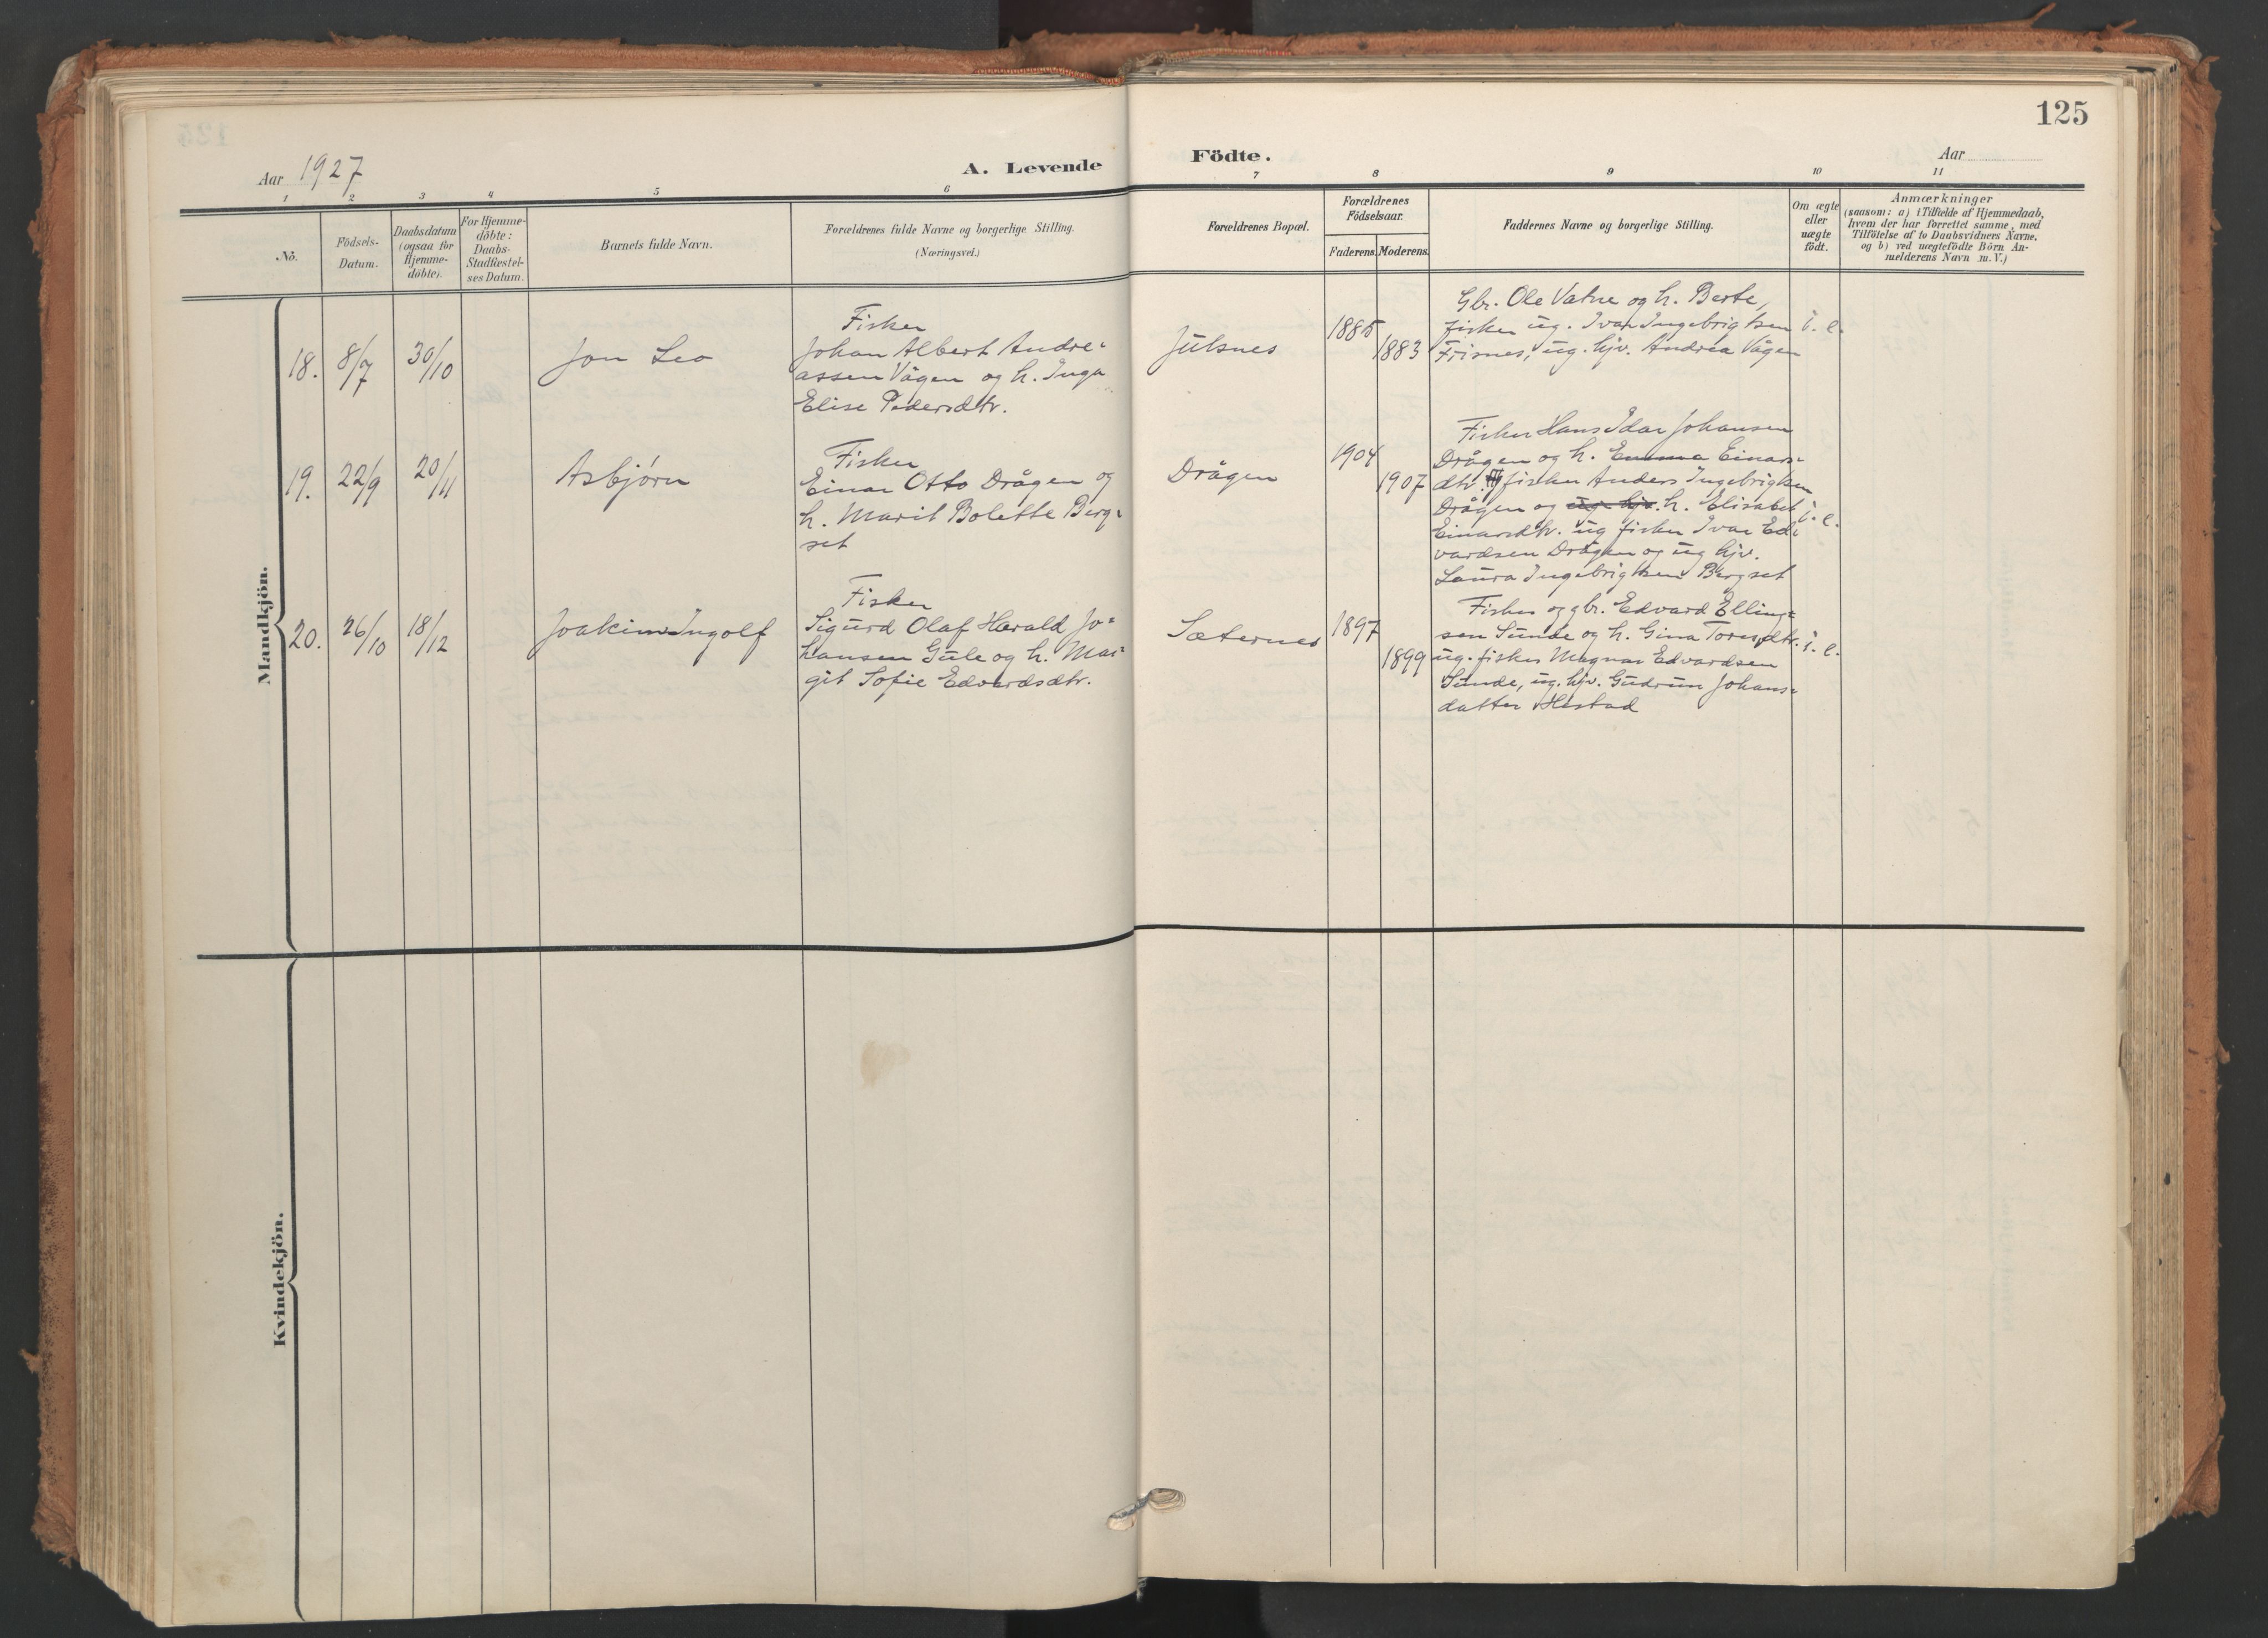 125
Aar 1927
A. Levende
Födte.
Aar
1 2 3 4 5 6 7 8 9 10 11
No.
Födsels-
Datum.
Daabsdatum
(ogsaa for
Hjemme-
döbte).
For Hjemme-
döbte:
Daabs-
Stadfæstel-
ses Datum.
Barnets fulde Navn.
Forældrenes fulde Navne og borgerlige Stilling.
(Næringsvei.)
Forældrenes Bopæl.
Forældrenes
Födselsaar.
Faderens. Moderens.
Faddernes Navne og borgerlige Stilling.
Om ægte
eller
uægte
födt.
Anmærkninger
(saasom: a) i Tilfælde af Hjemmedaab,
hvem der har forrettet samme, med
Tilföielse af to Daabsvidners Navne,
og b) ved uægtefödte Börn An-
melderens Navn m. V.)
Mandkjön.
18. 8/7 30/10 Jon Leo
Fisker
Johan Albert Andre-
assen Vågen og h. Inga
Elise Pedersdtr.
Julsnes
1885
1883
Gbr. Ole Vatne og h. Berte,
fisker ug. Ivar Ingebrigtsen
Frisnes, ug. hjv. Andrea Vågen
i. e.
19. 22/9 20/11 Asbjørn
Fisker
Einar Otto Drågen og
h. Marit Bolette Berg-
set
Drågen
1904
1907
Fisker Hans Idar Johansen
Drågen og h. Emma Einars-
dtr. fisker Anders Ingebrigtsen
Drågen og ug. hjv. h. Elisabet
Einarsdtr. ug fisker Ivar Ed-
vardsen Drågen og ug hjv.
Laura Ingebrigtsen Bergset
i. e.
20. 26/10 18/12 Joakim Ingolf
Fisker
Sigurd Olaf Harald Jo-
hansen Gule og h. Mar-
git Sofie Edvardsdtr.
Sæternes
1897
1899
Fisker og gbr. Edvard Elling-
sen Sunde og h. Gina Toresdtr.
ug. fisker Magnar Edvardsen
Sunde, ug. hjv. Gudrun Johans-
datter Hestad
i. e.
Kvindekjön.